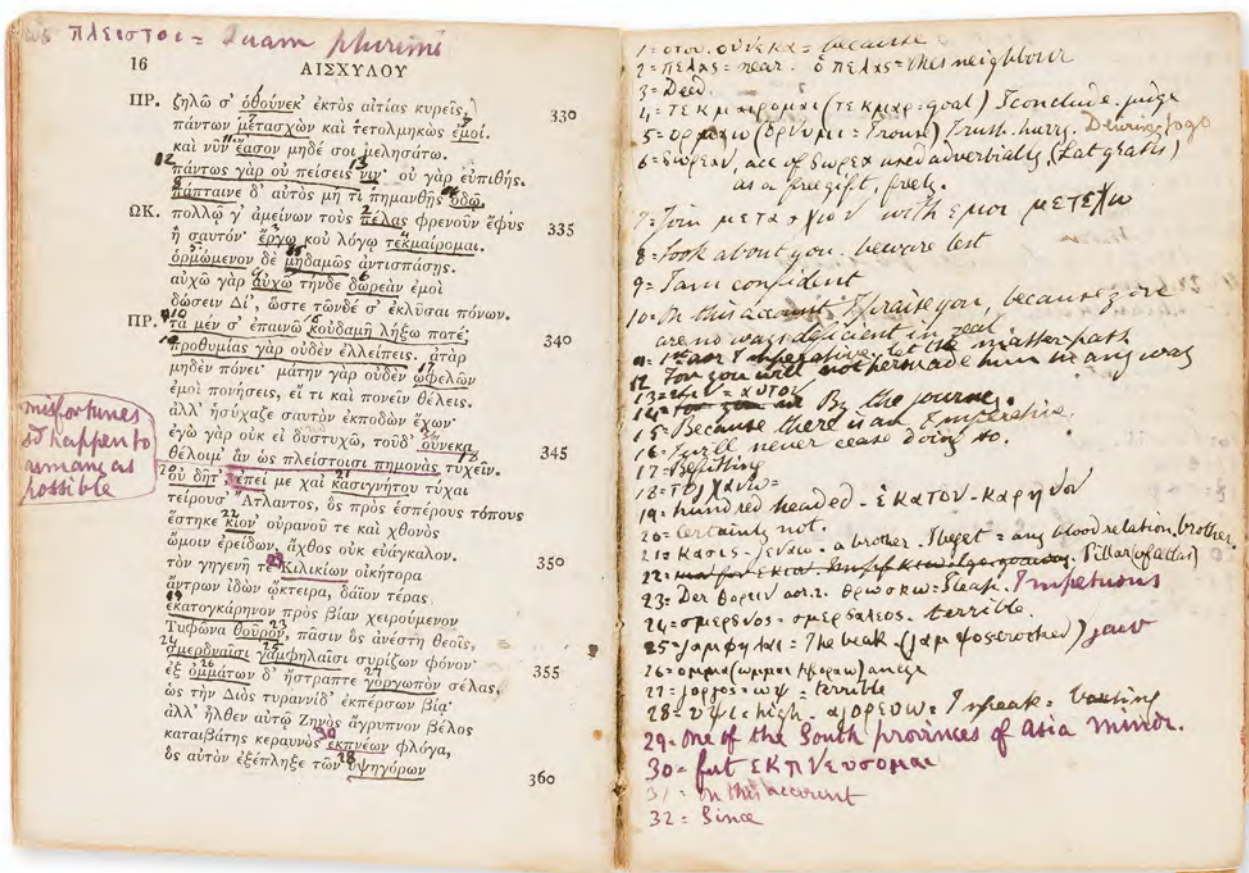 ὡς πλειστοι = Quam plurimi
16
ΑΙΣΧΥΛΟΥ
ΠΡ. ζηλῶ σ' ὁθούνεκ' ἐκτὸς αἰτίας κυρεῖς, 330
πάντων μετασχὼν καὶ τετολμηκὼς ἐμοί.
καὶ νῦν ἔασον μηδέ σοι μελησάτω.
πάντως γὰρ οὐ πείσεις νιν· οὐ γὰρ εὐπιθής.
πάπταινε δ' αὐτὸς μή τι πημανθῇς ὁδῷ.
ΩΚ. πολλῷ γ' ἀμείνων τοὺς πέλας φρενοῦν ἔφυς 335
ἢ σαυτόν· ἔργῳ κοὐ λόγῳ τεκμαίρομαι.
ὁρμώμενον δὲ μηδαμῶς ἀντισπάσῃς.
αὐχῶ γὰρ αὐχῶ τήνδε δωρεὰν ἐμοὶ
δώσειν Δί', ὥστε τῶνδέ σ' ἐκλῦσαι πόνων.
ΠΡ. τὰ μέν σ' ἐπαινῶ κοὐδαμῇ λήξω ποτέ, 340
προθυμίας γὰρ οὐδὲν ἐλλείπεις. ἀτὰρ
μηδὲν πόνει· μάτην γὰρ οὐδὲν ὠφελῶν
ἐμοὶ πονήσεις, εἴ τι καὶ πονεῖν θέλεις.
ἀλλ' ἡσύχαζε σαυτὸν ἐκποδὼν ἔχων·
ἐγὼ γὰρ οὐκ εἰ δυστυχῶ, τοῦδ' οὕνεκα 345
θέλοιμ' ἂν ὡς πλείστοισι πημονὰς τυχεῖν.
οὐ δῆτ', ἐπεί με χαἰ κασιγνήτου τύχαι
τείρουσ' Ἄτλαντος, ὃς πρὸς ἑσπέρους τόπους
ἕστηκε κίον' οὐρανοῦ τε καὶ χθονὸς
ὤμοιν ἐρείδων, ἄχθος οὐκ εὐάγκαλον. 350
τὸν γηγενῆ τε Κιλικίων οἰκήτορα
ἄντρων ἰδὼν ᾤκτειρα, δάϊον τέρας,
ἑκατογκάρηνον πρὸς βίαν χειρούμενον
Τυφῶνα θοῦρον, πᾶσιν ὃς ἀνέστη θεοῖς,
σμερδναῖσι γαμφηλαῖσι συρίζων φόνον· 355
ἐξ ὀμμάτων δ' ἤστραπτε γοργωπὸν σέλας,
ὡς τὴν Διὸς τυραννίδ' ἐκπέρσων βίᾳ·
ἀλλ' ἦλθεν αὐτῷ Ζηνὸς ἄγρυπνον βέλος
καταιβάτης κεραυνὸς ἐκπνέων φλόγα,
ὃς αὐτὸν ἐξέπληξε τῶν ὑψηγόρων 360
misfortunes
sd happen to
as many as
possible
1 = οτου. ουνεκα = because
2 = πελας = near. ὁ πελας = ones neighbour
3 = Deed.
4 = τεκμαιρομαι (τεκμαρ = goal) I conclude. judge
5 = ορμαω (ορνυμι = I rouse) I rush. hurry. Desiring to go
6 = δωρεαν, acc of δωρεα used adverbially. (Lat gratis)
as a free gift, freely.
7 = Join μετασχων with εμοι μετεχω
8 = look about you. beware lest
9 = I am confident
10 = On this account I praise you, because you are
are no ways deficient in zeal
11 = 1st aor Imperative, let the matter pass
12 For you will not persuade him in any way
13 = νιν = αυτον
14 = By the journey.
15 = Because there is an Imperative.
16 = I will never cease doing so.
17 = Benefitting
18 = τυγχανω =
19 = hundred headed - ἑκατον - καρηνον
20 = Certainly not.
21 = κασις - γεναω. a brother. I beget = any blood relation. brother.
22 = Pillar (of atlas)
23 = Der θορειν aor. 2. θρωσκω = I leap. Impetuous
24 = σμερδνος - σμερδαλεος. terrible.
25 = γαμφηλαι = The beak. (γαμψος crooked) jaw
26 = ομμα an eye
27 = γοργος = ωψ = terrible
28 = υψι = high. αγορευω = I speak = Vaunting
29 = One of the South provinces of Asia Minor.
30 = fut εκπνευσομαι
31 = on this account
32 = Since